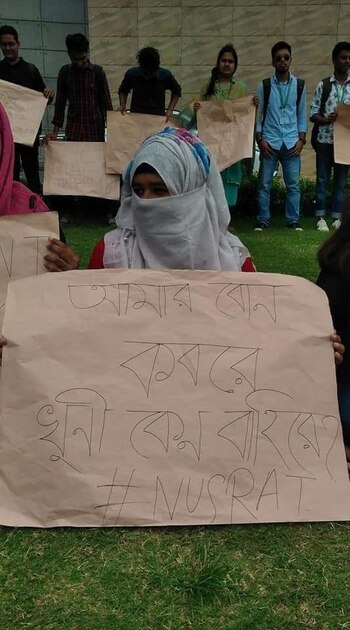 আমার বোন
কবরে
খুনী কেন বাহিরে?
#NUSRAT